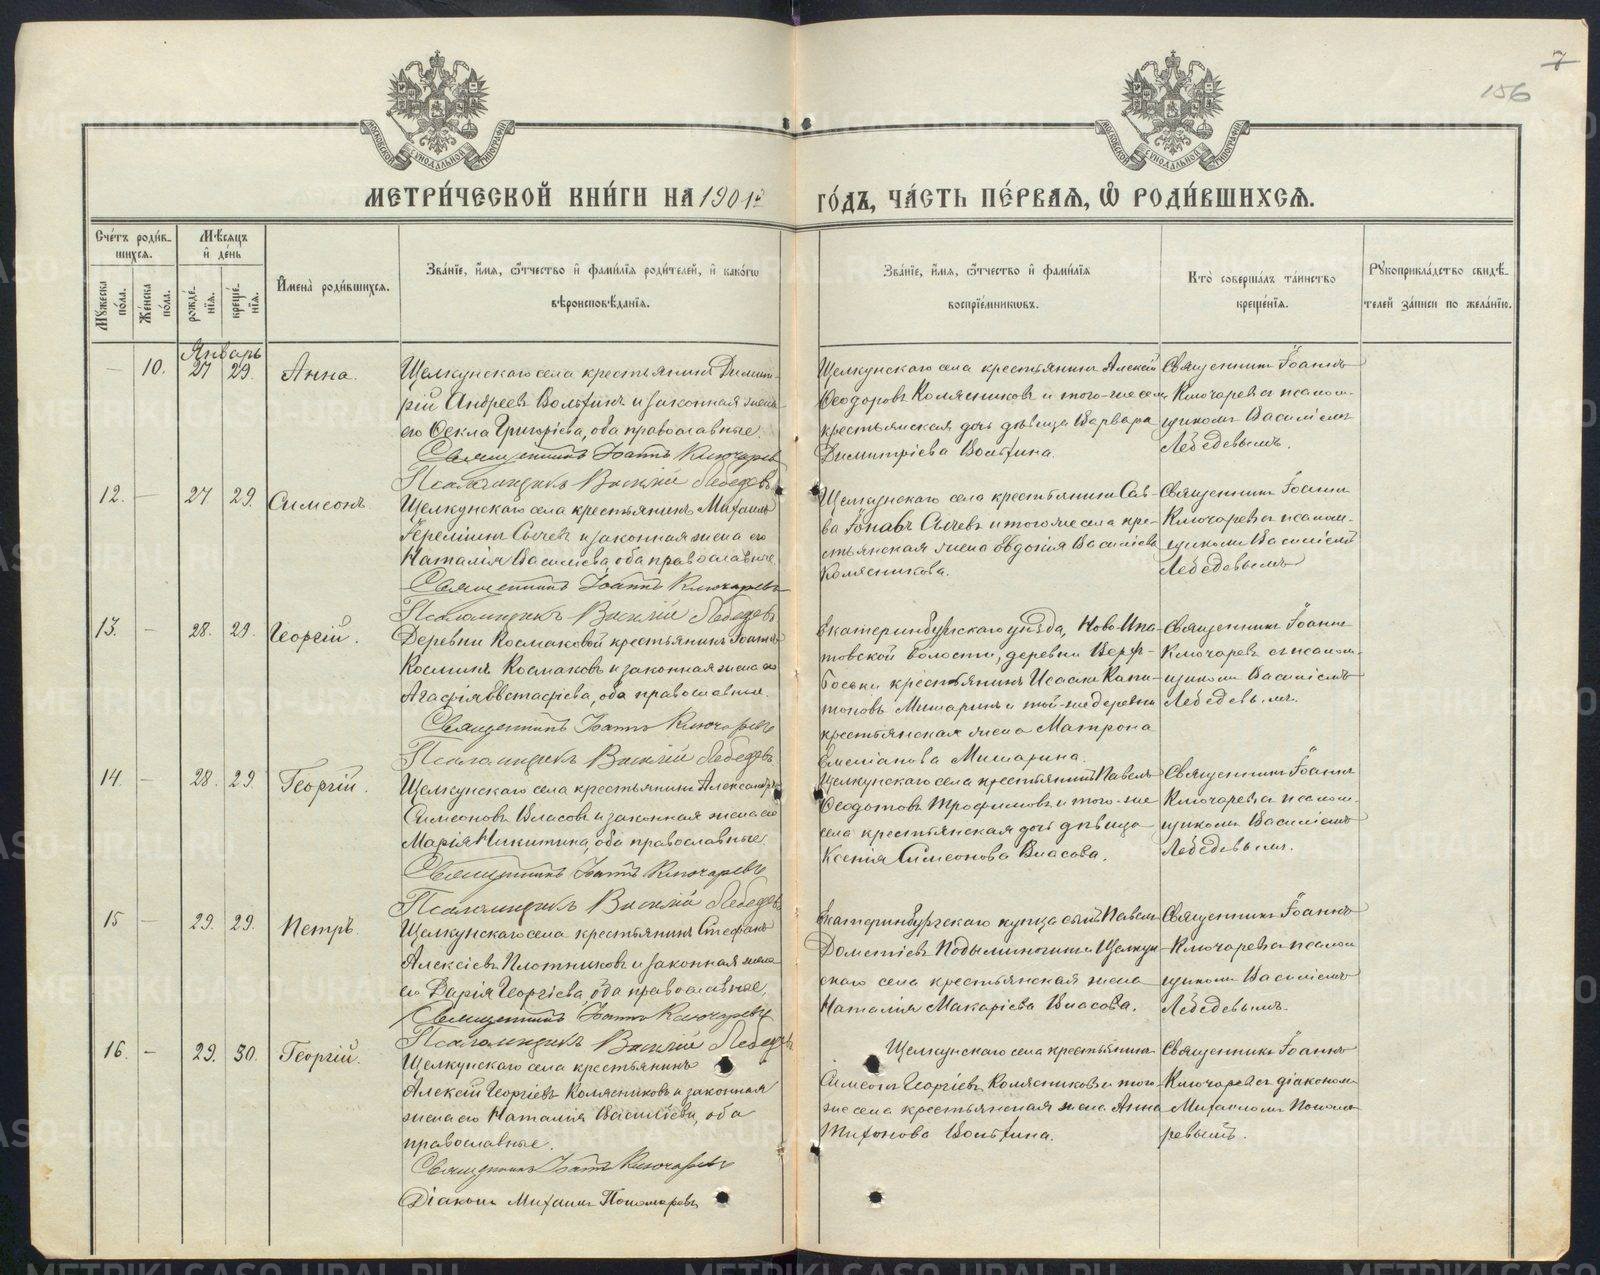 7
156
МОСКОВСКОЙ СѴНОДАЛЬНОЙ ТИПОГРАФІИ
МОСКОВСКОЙ СѴНОДАЛЬНОЙ ТИПОГРАФІИ
МЕТРИ́ЧЕСКОЙ КНИ́ГИ НА 1901й ГО́ДЪ, ЧА́СТЬ ПЕ́РВАѦ, Ѽ РОДИ́ВШИХСѦ.
Сче́тъ роди́вшихсѧ.
Мѣ́сѧцъ и҆ де́нь
Мꙋ́жеска по́ла.
Же́нска по́ла.
рожде́нїѧ.
креще́нїѧ.
И҆мена̀ роди́вшихсѧ.
Зва́нїе, и҆́мѧ, ѻ҆́тчество и҆ фами́лїѧ роди́телей, и҆ како́гѡ
вѣроисповѣ́данїѧ.
Зва́нїе, и҆́мѧ, ѻ҆́тчество и҆ фами́лїѧ
воспрїе́мникѡвъ.
Кто̀ соверша́лъ та́инство
креще́нїѧ.
Рꙋкоприкла́дство свидѣ́-
телей за́писи по жела́нїю.
Январь
— 10. 27 29. Анна.
Щелкунскаго села крестьянинъ Димит-
рій Андреевъ Волыхинъ и законная жена
его Ѳекла Григоріева, оба православные.
Священникъ Іоаннъ Ключаревъ
Псаломщикъ Василій Лебедевъ
Щелкунскаго села крестьянинъ Алексій
Ѳеодоровъ Колясниковъ и того-же села
крестьянская дочь дѣвица Варвара
Димитріева Волыхина.
Священникъ Іоаннъ
Ключаревъ съ псалом-
щикомъ Василіемъ
Лебедевымъ.
12. — 27 29. Симеонъ
Щелкунскаго села крестьянинъ Михаилъ
Сычевъ и законная жена его
Наталія Василіева, оба православные.
Священникъ Іоаннъ Ключаревъ
Псаломщикъ Василій Лебедевъ
Щелкунскаго села крестьянинъ Сав-
ва Сычевъ и того же села кре-
стьянская жена Евдокія Василіева
Колясникова.
Священникъ Іоаннъ
Ключаревъ съ псалом-
щикомъ Василіемъ
Лебедевымъ
13. — 28. 29. Георгій.
Деревни Космаковой крестьянинъ Іоаннъ
Косминъ Космаковъ и законная жена его
Агафія Евстафіева, оба православные.
Священникъ Іоаннъ Ключаревъ
Псаломщикъ Василій Лебедевъ
Екатеринбургскаго уѣзда, Ново-Ипа-
товской волости, деревни
крестьянинъ Исаакъ Капи-
тоновъ Мишаринъ и той-же деревни
крестьянская жена Матрона
Емеліанова Мишарина.
Священникъ Іоаннъ
Ключаревъ съ псалом-
щикомъ Василіемъ
Лебедевымъ.
14. — 28. 29. Георгій.
Щелкунскаго села крестьянинъ Александръ
Симеоновъ Власовъ и законная жена его
Марія Никитина, оба православные.
Священникъ Іоаннъ Ключаревъ
Псаломщикъ Василій Лебедевъ
Щелкунскаго села крестьянинъ Павелъ
Ѳеодотовъ Трофимовъ и того-же
села крестьянская дочь дѣвица
Ксенія Симеонова Власова.
Священникъ Іоаннъ
Ключаревъ съ псалом-
щикомъ Василіемъ
Лебедевымъ.
15 — 29. 29. Петръ.
Щелкунскаго села крестьянинъ Стефанъ
Алексіевъ Плотниковъ и законная жена
его Дарія Георгіева, оба православные.
Священникъ Іоаннъ Ключаревъ
Псаломщикъ Василій Лебедевъ
Екатеринбургскаго купца сынъ Павелъ
Дометіевъ Подыминогинъ и Щелкун-
скаго села крестьянская жена
Наталія Макаріева Власова.
Священникъ Іоаннъ
Ключаревъ съ псалом
щикомъ Василіемъ
Лебедевымъ.
16. — 29. 30. Георгій.
Щелкунскаго села крестьянинъ
Алексій Георгіевъ Колясниковъ и законная
жена его Наталія Василіева, оба
православные.
Священникъ Іоаннъ Ключаревъ
Діаконъ Михаилъ Пономаревъ
Щелкунскаго села крестьянинъ
Симеонъ Георгіевъ Колясниковъ и того-
же села крестьянская жена Анна
Тихонова Волыхина.
Священникъ Іоаннъ
Ключаревъ съ діакономъ
Михаиломъ Понома-
ревымъ.